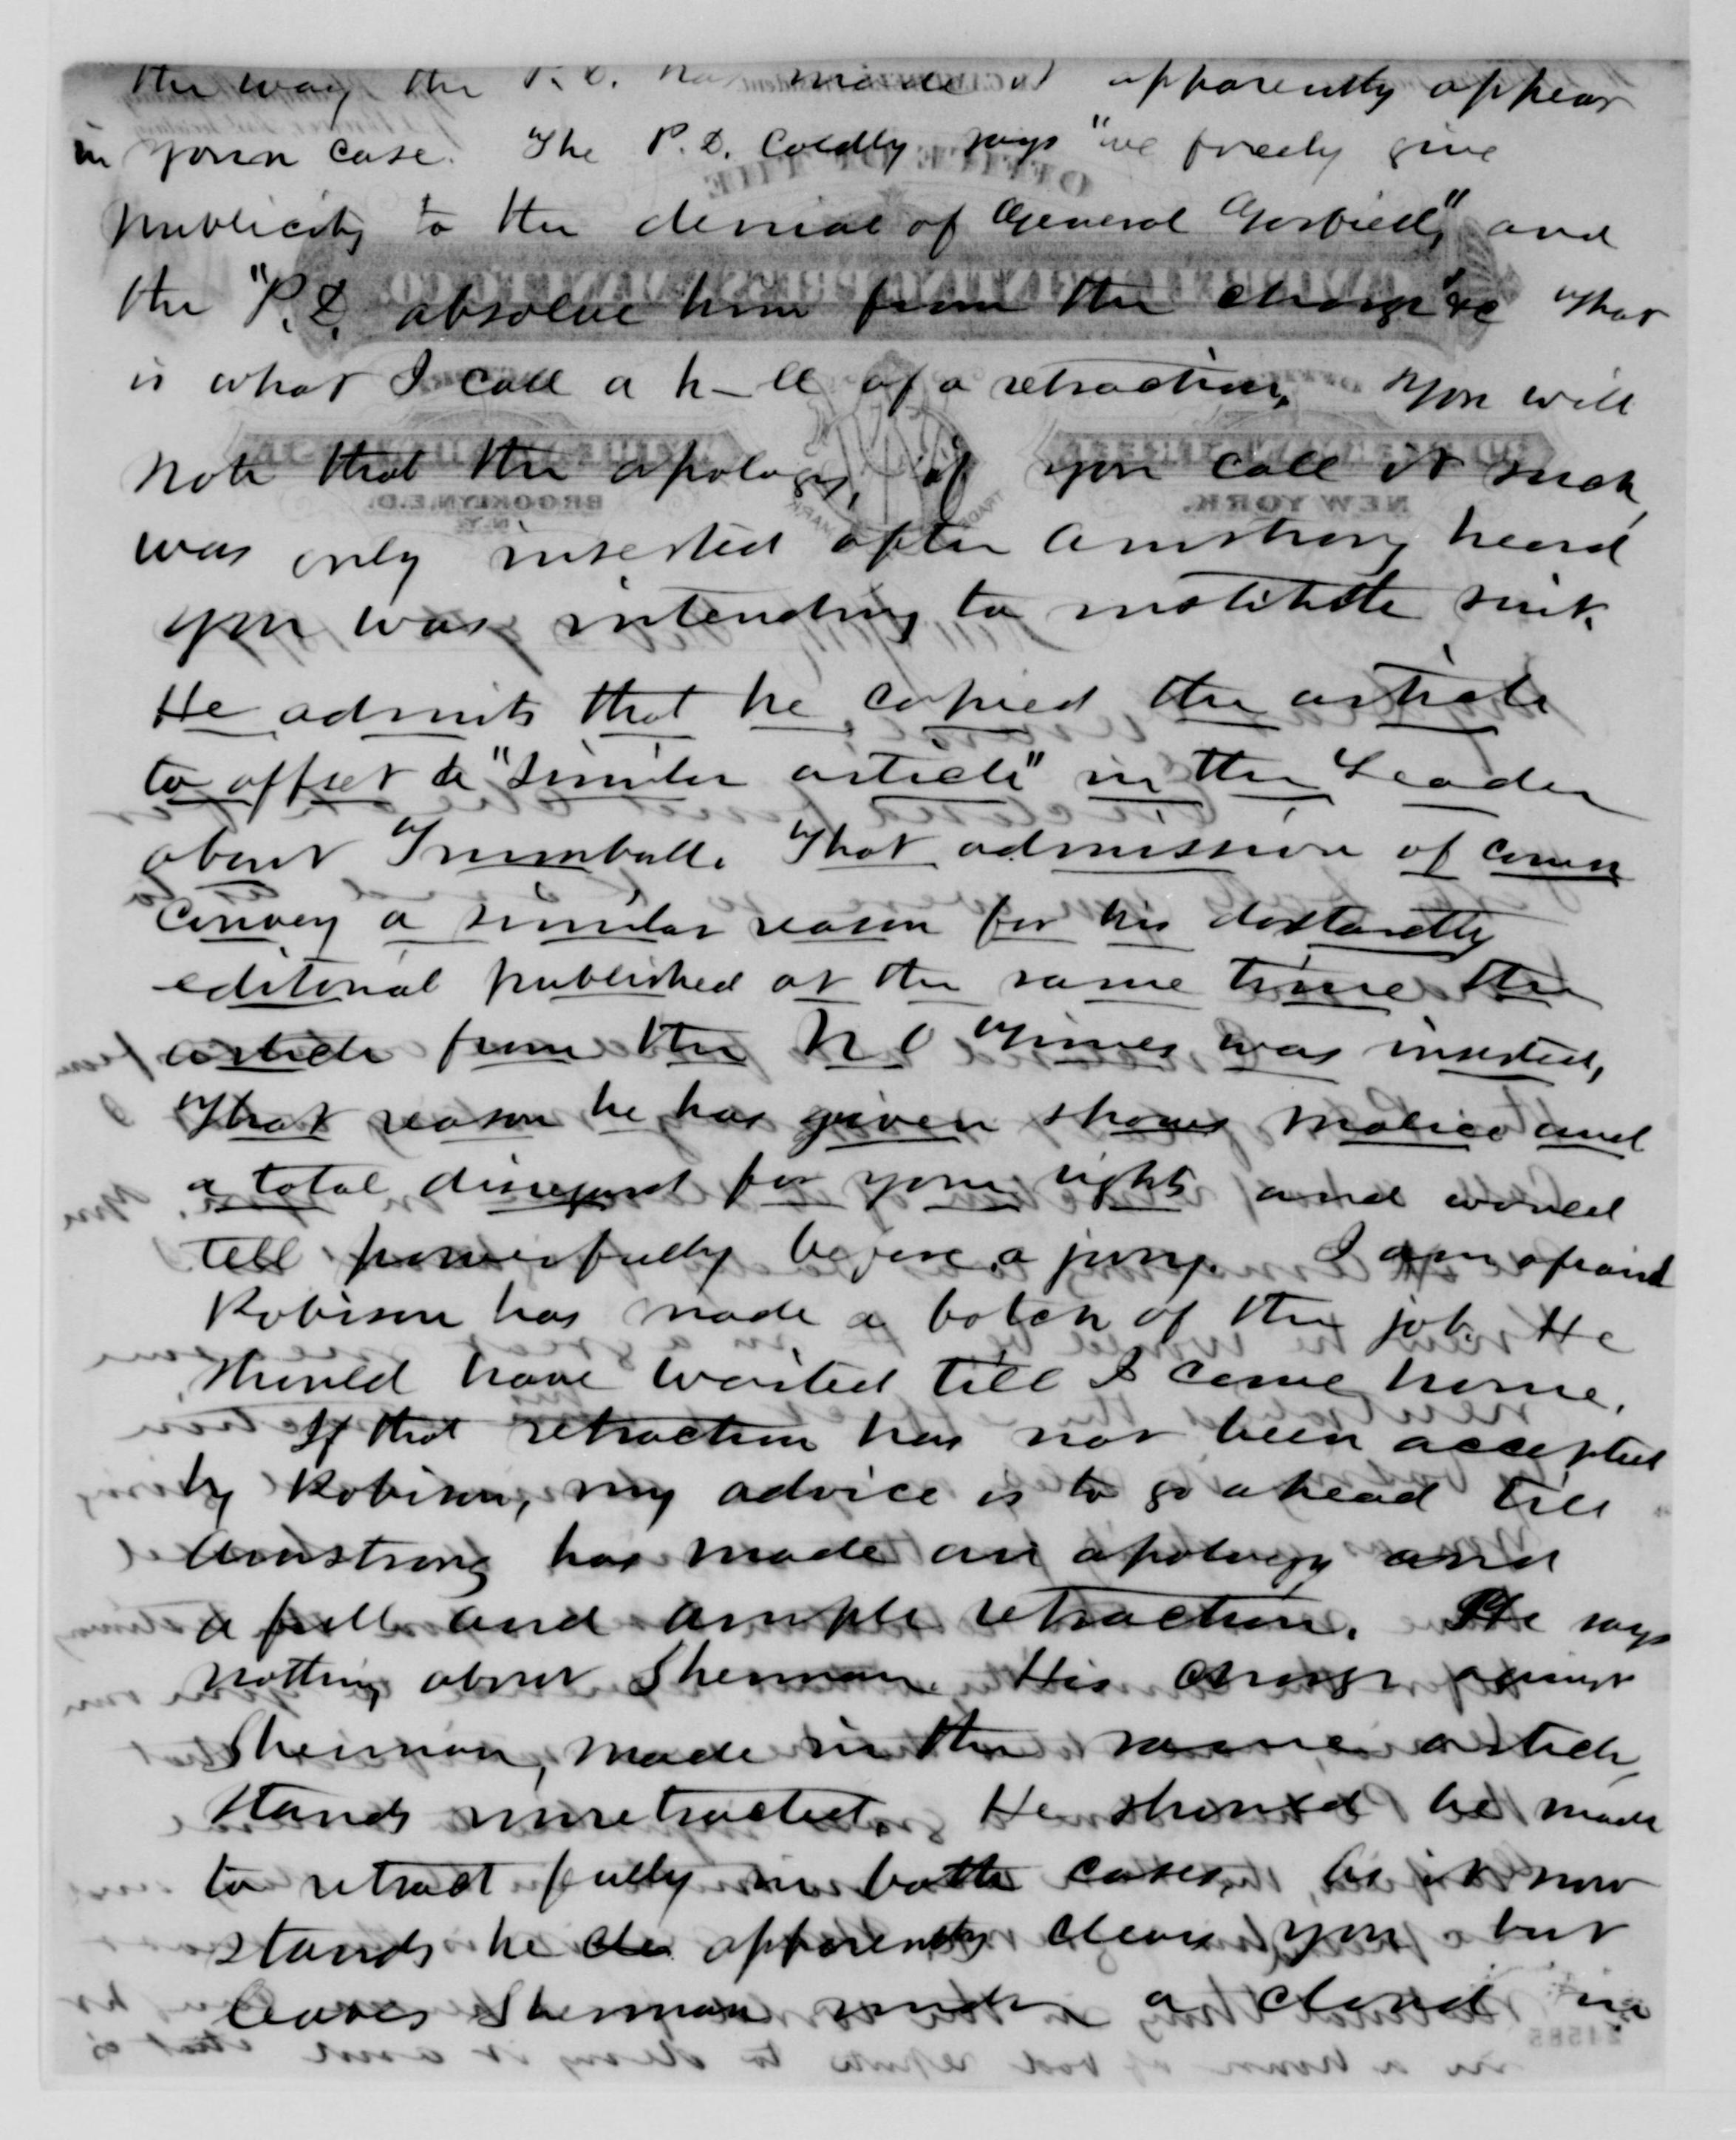 the way the P.D. has made it apparently appear
in your case. The P.D. Coldly says "we freely give
publicity to the denial of General Garfield," and
the "P.D. absolve him from the charge" &c That
is what I call a h—ll of a retraction. You will
note that the apology, if you call it such,
was only inserted after Armstrong heard
you was intending to institute suit.
He admits that he copied the article
to offset a "similar article" in the Leader
about Trumbull. That admission of course
convey a similar reason for his dastardly
editorial published at the same time the
article from the N O Times was inserted,
That reason he has given shows malice and
a total disregard for your rights and would
tell powerfully before a jury. I am afraid
Robison has made a botch of the job. He
should have waited till I came home.
If that retraction has not been accepted
by Robison, my advice is to go ahead till
Armstrong has made an apology and
a full and ample retraction. He says
nothing about Sherman. His charge against
Sherman, made in the same article,
stands unretracted. He should be made
to retract fully in both cases, as it now
stands he apparently clears you but
leaves Sherman under a cloud
OFFICE OF THE
BROOKLYN. E.D.
N.Y.
NEW YORK.
TRADE MARK
24585